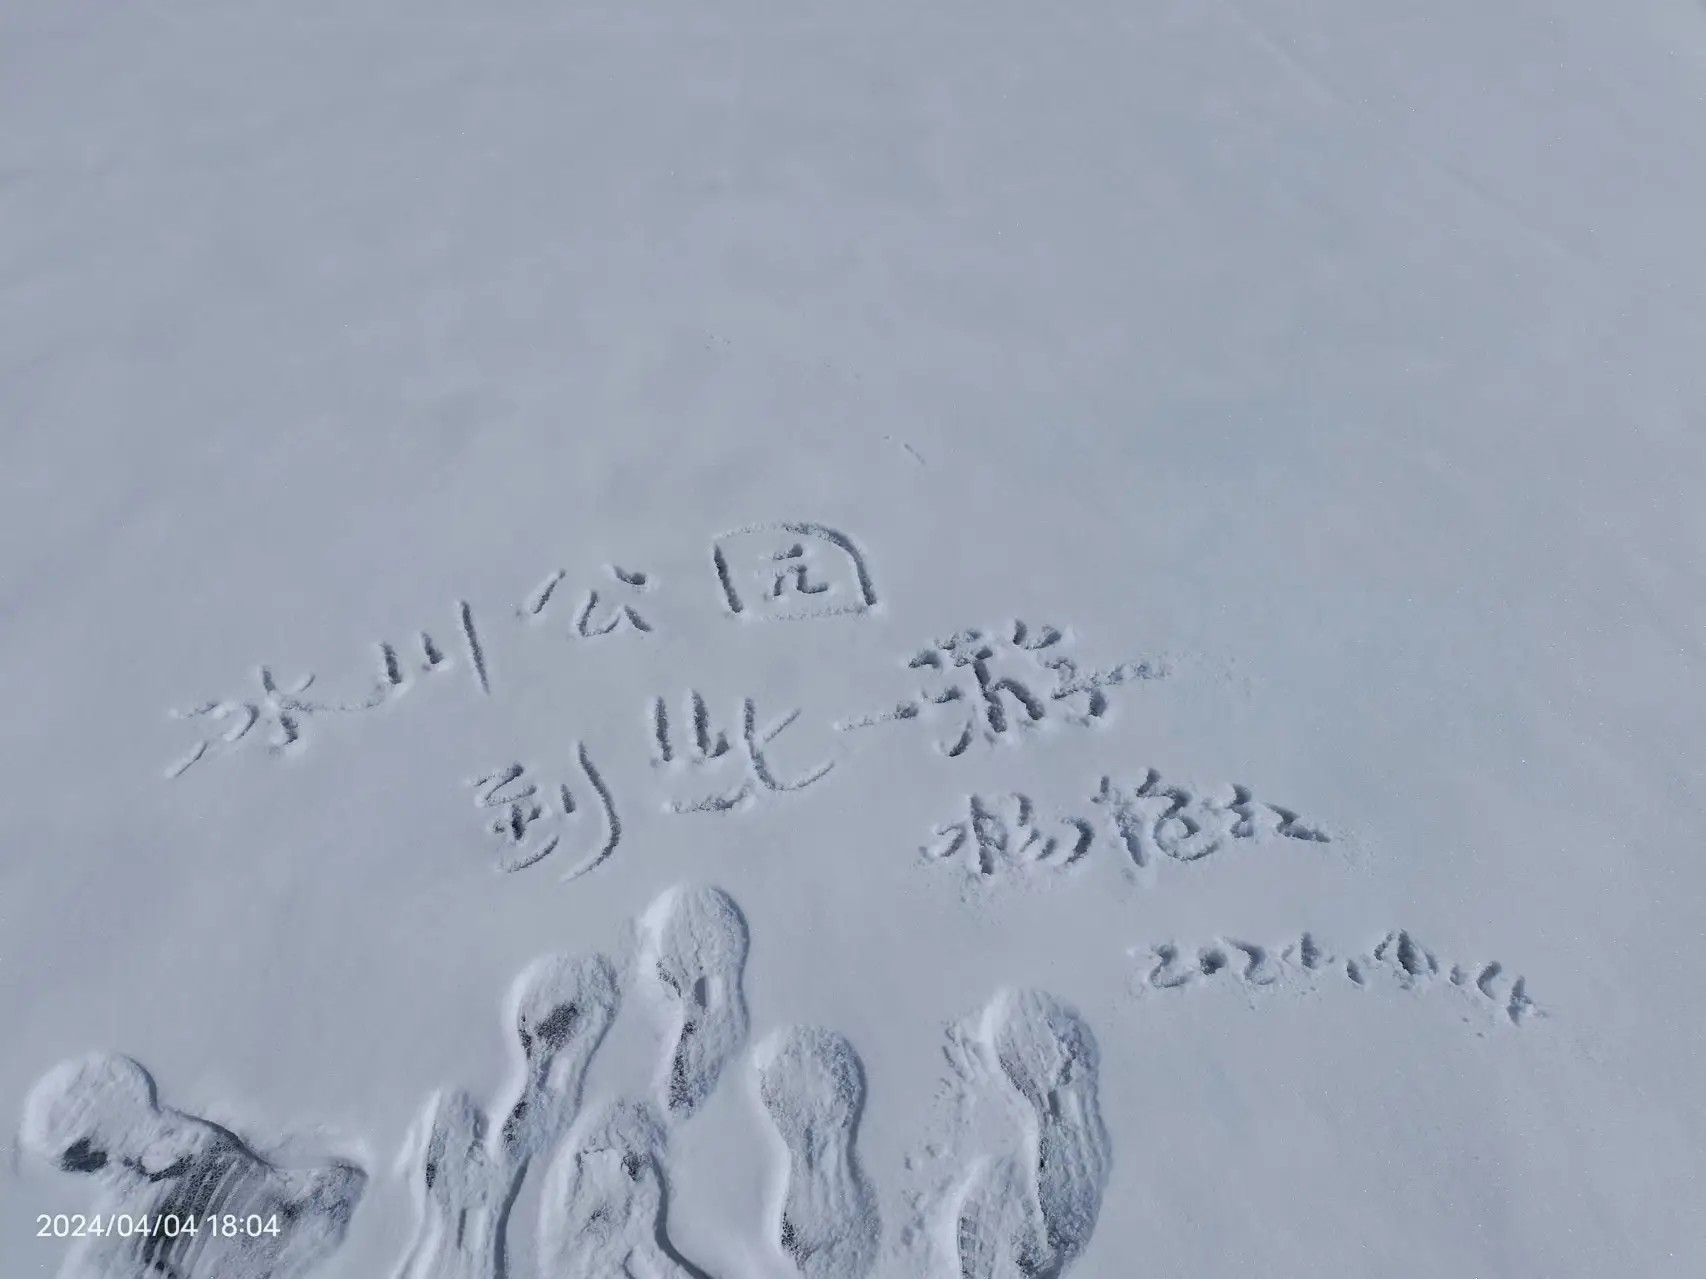 冰川公园
到此一游
杨艳红
2024.4.4
2024/04/04 18:04